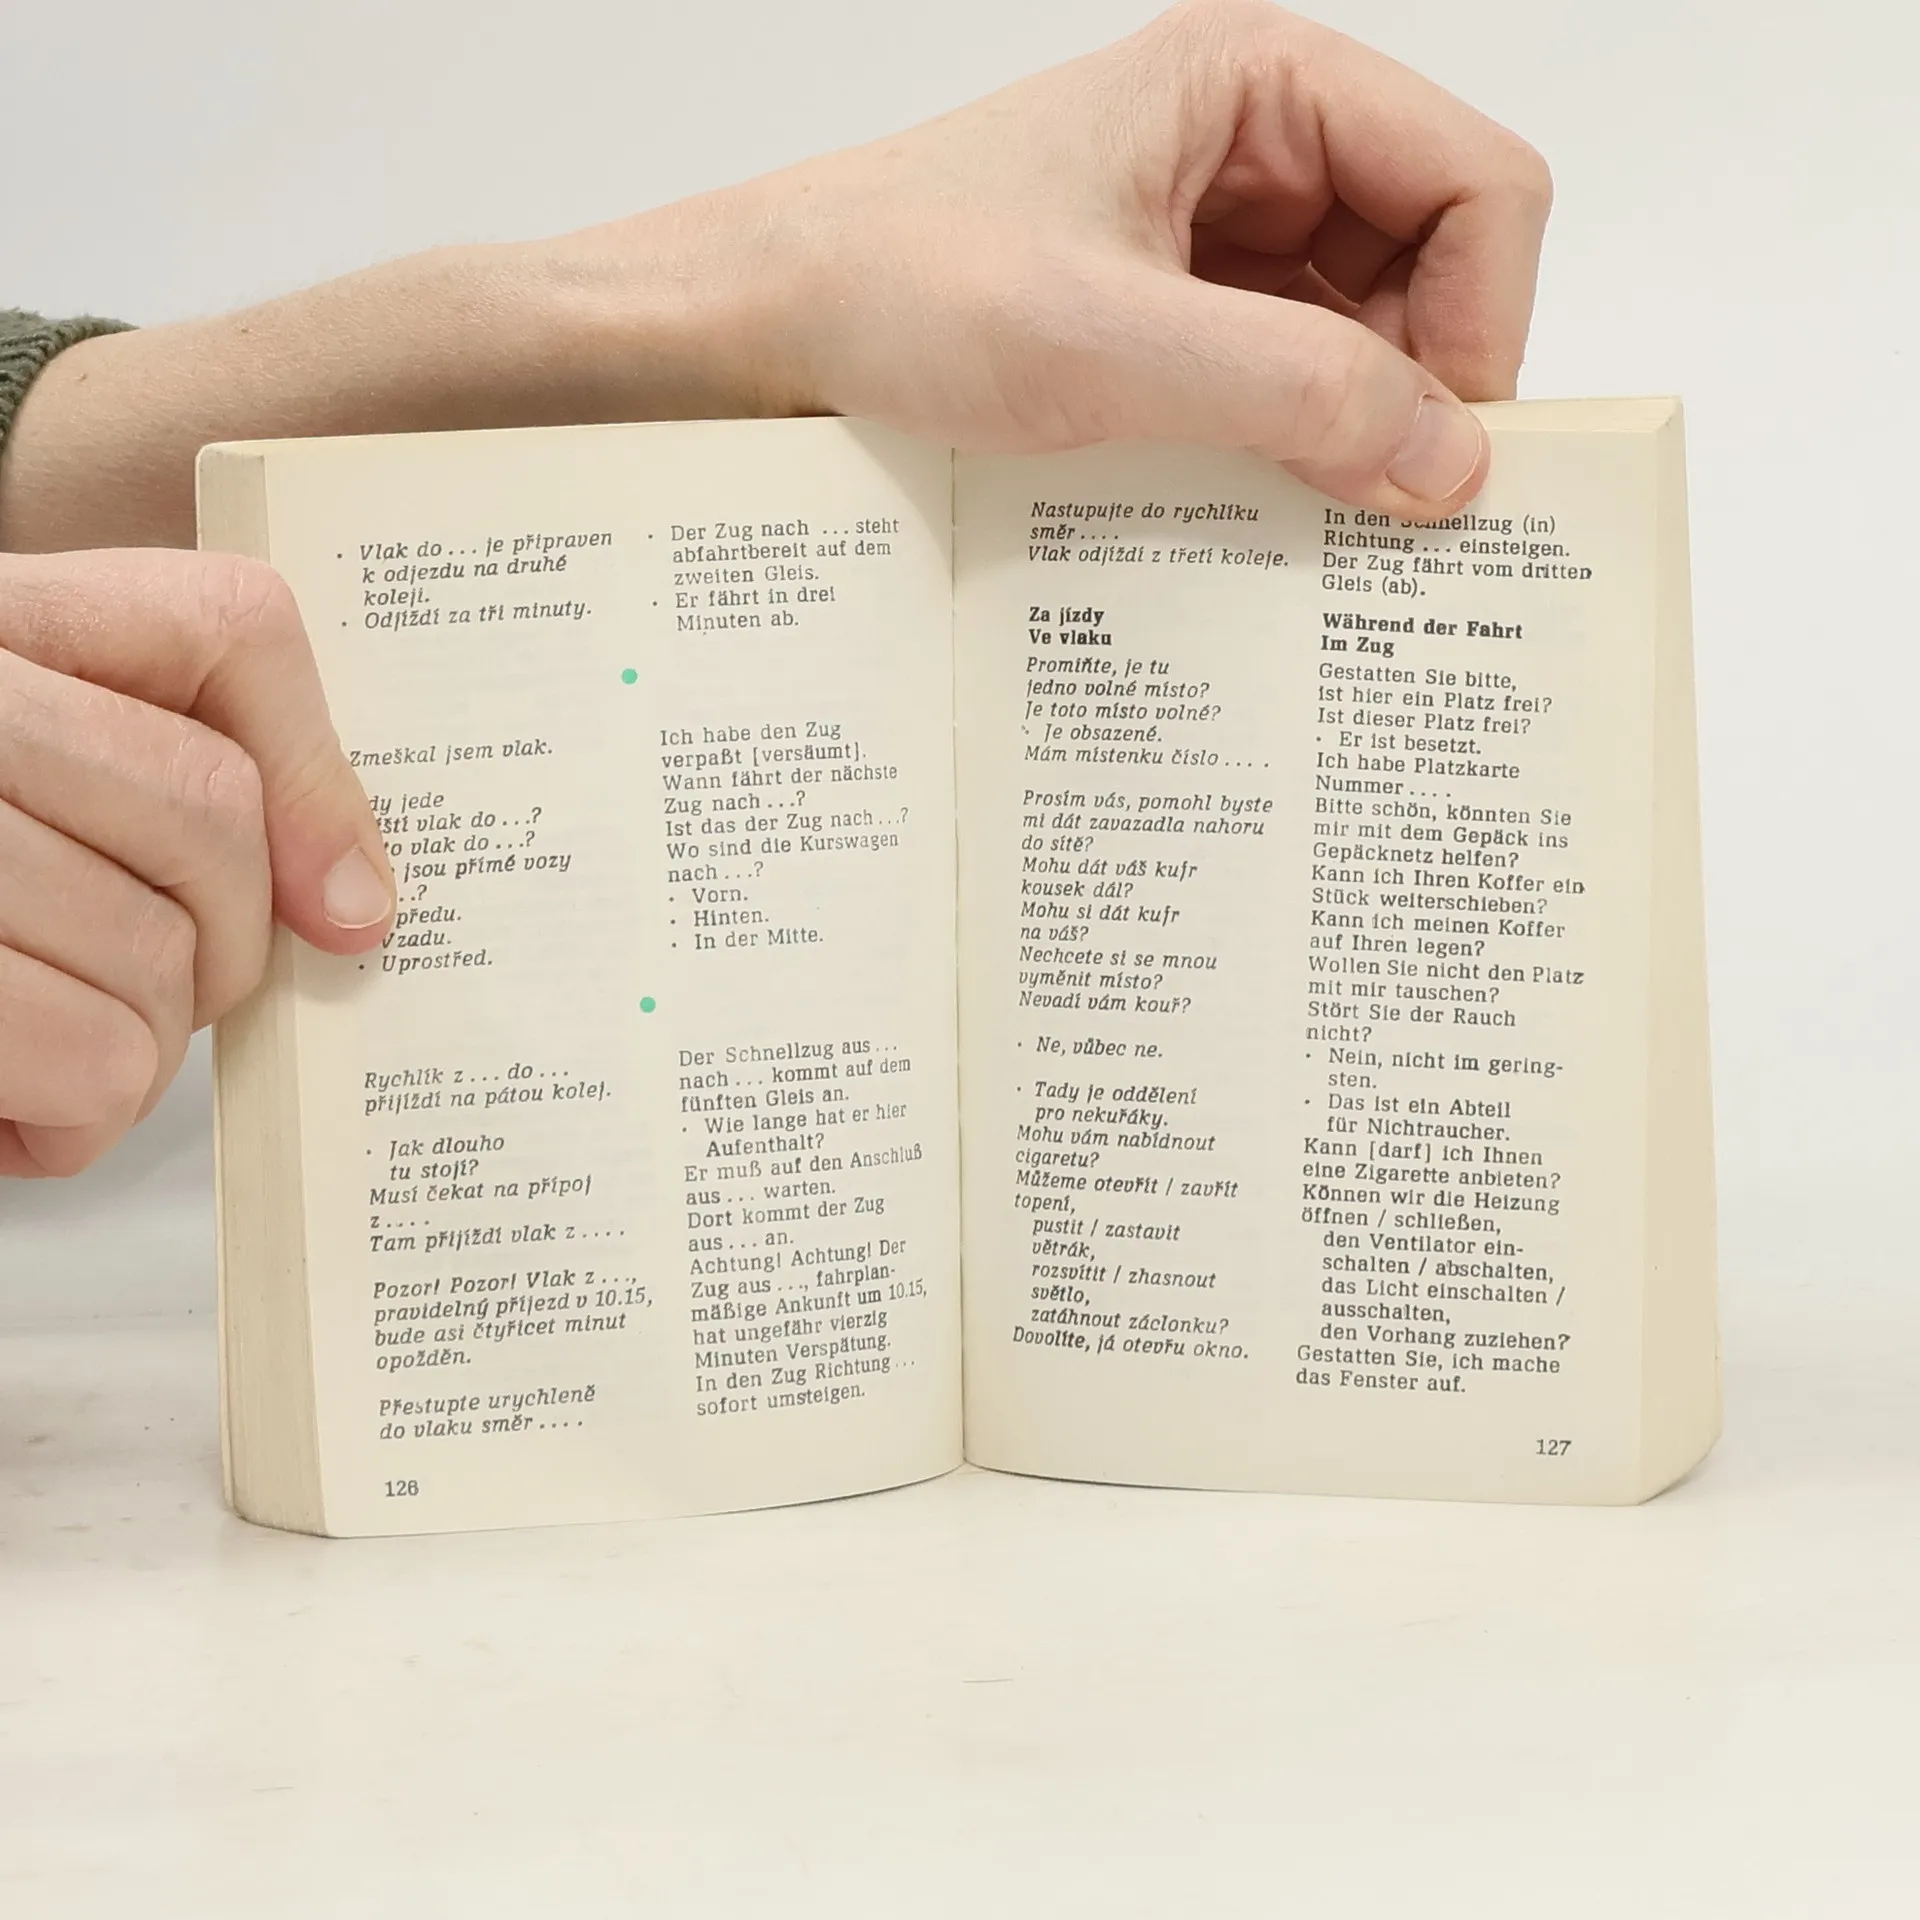 • Vlak do ... je připraven
k odjezdu na druhé
koleji.
• Odjíždí za tři minuty.
Zmeškal jsem vlak.
jede
vlak do ...?
vlak do ...?
jsou přímé vozy
...?
předu.
Vzadu.
• Uprostřed.
Rychlík z ... do ...
přijíždí na pátou kolej.
• Jak dlouho
tu stojí?
Musí čekat na přípoj
z ....
Tam přijíždí vlak z ....
Pozor! Pozor! Vlak z ...,
pravidelný příjezd v 10.15,
bude asi čtyřicet minut
opožděn.
Přestupte urychleně
do vlaku směr ....
126
• Der Zug nach ... steht
abfahrtbereit auf dem
zweiten Gleis.
• Er fährt in drei
Minuten ab.
Ich habe den Zug
verpaßt [versäumt].
Wann fährt der nächste
Zug nach ...?
Ist das der Zug nach ...?
Wo sind die Kurswagen
nach ...?
• Vorn.
• Hinten.
• In der Mitte.
Der Schnellzug aus ...
nach ... kommt auf dem
fünften Gleis an.
• Wie lange hat er hier
Aufenthalt?
Er muß auf den Anschluß
aus ... warten.
Dort kommt der Zug
aus ... an.
Achtung! Achtung! Der
Zug aus ..., fahrplan-
mäßige Ankunft um 10.15,
hat ungefähr vierzig
Minuten Verspätung.
In den Zug Richtung ...
sofort umsteigen.
Nastupujte do rychlíku
směr ....
Vlak odjíždí z třetí koleje.
Za jízdy
Ve vlaku
Promiňte, je tu
jedno volné místo?
Je toto místo volné?
• Je obsazené.
Mám místenku číslo ....
Prosím vás, pomohl byste
mi dát zavazadla nahoru
do sítě?
Mohu dát váš kufr
kousek dál?
Mohu si dát kufr
na váš?
Nechcete si se mnou
vyměnit místo?
Nevadí vám kouř?
• Ne, vůbec ne.
• Tady je oddělení
pro nekuřáky.
Mohu vám nabídnout
cigaretu?
Můžeme otevřít / zavřít
topení,
pustit / zastavit
větrák,
rozsvítit / zhasnout
světlo,
zatáhnout záclonku?
Dovolíte, já otevřu okno.
In den Schnellzug (in)
Richtung ... einsteigen.
Der Zug fährt vom dritten
Gleis (ab).
Während der Fahrt
Im Zug
Gestatten Sie bitte,
ist hier ein Platz frei?
Ist dieser Platz frei?
• Er ist besetzt.
Ich habe Platzkarte
Nummer ....
Bitte schön, könnten Sie
mir mit dem Gepäck ins
Gepäcknetz helfen?
Kann ich Ihren Koffer ein
Stück weiterschieben?
Kann ich meinen Koffer
auf Ihren legen?
Wollen Sie nicht den Platz
mit mir tauschen?
Stört Sie der Rauch
nicht?
• Nein, nicht im gering-
sten.
• Das ist ein Abteil
für Nichtraucher.
Kann [darf] ich Ihnen
eine Zigarette anbieten?
Können wir die Heizung
öffnen / schließen,
den Ventilator ein-
schalten / abschalten,
das Licht einschalten /
ausschalten,
den Vorhang zuziehen?
Gestatten Sie, ich mache
das Fenster auf.
127